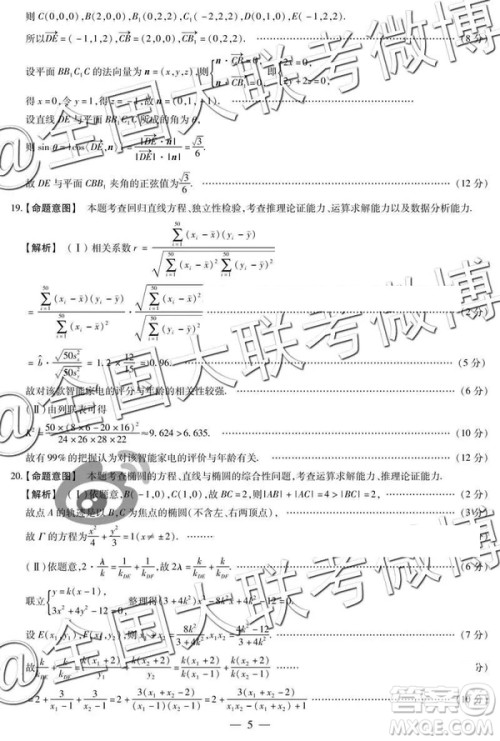 则 C(0,0,0), B(2,0,0), B₁(0,2,2), C₁(-2,2,2), D(0,1,0), E(
所以 DE = (-1,1,2), CB = (2,0,0), CB₁ = (0,2,2). (8 分)
设平面 BB₁C₁C 的法向量为 n = (x,y,z), 则 { n · CB n · CB₁ 即 { 2x = 0,
得 x = 0, 令 y = 1, 得 z = -1, 故 n = (0,1,-1).
设直线 DE 与平面 BB₁C₁C 所成的角为 θ,
则 sin θ = |cos⟨DE, n⟩| = |DE · n| / |DE| |n| = √3/6.
故 DE 与平面 CBB₁ 夹角的正弦值为 √3/6. (12 分)
19.【命题意图】 本题考查回归直线方程、独立性检验,考查推理论证能力、运算求解能力以及数据分析能力.
【解析】 (Ⅰ)相关系数 r = Σ(i=1→50)(xᵢ - x̄)(yᵢ - ȳ) / √(Σ(i=1→50)(xᵢ - x̄)² Σ(i=1→50)(yᵢ - ȳ)²)
= Σ(i=1→50)(xᵢ - x̄)(yᵢ - ȳ) / Σ(i=1→50)(xᵢ - x̄)² · √(Σ(i=1→50)(xᵢ - x̄)²) (2 分)
= b̂ · √(50s²) / = 1.2 × 12/15 = 0.96. (5 分)
故对该款智能家电的评分与年龄的相关性较强. (6 分)
(Ⅱ)由列联表可得
K² = 50 × (8×6-20×16)² / 24×26×28×22 ≈ 9.624 > 6.635. (10 分)
故有 99% 的把握认为对该智能家电的评价与年龄有关. (12 分)
20.【命题意图】 本题考查椭圆的方程、直线与椭圆的综合性问题,考查运算求解能力、推理论证能力.
【解析】 (Ⅰ)依题意, B(-1,0), C(1,0), 故 BC = 2, 则 |AB| + |AC| = 4 > |BC| = 2, (2 分)
故点 A 的轨迹是以 B,C 为焦点的椭圆(不含左、右两顶点),
故 Γ 的方程为 x²/4 + y²/3 = 1(x ≠ ±2).
(Ⅱ)依题意, 2 · 1/k = 1/k_DE + 1/k_DF, 故 2λ = k/k_DE + k/k_DF.
联立 { y = k(x - 1), 3x² + 4y² - 12 = 0, 整理得 (3 + 4k²)x² - 8k²x + 4k² - 12 = 0.
设 E(x₁,y₁), F(x₂,y₂), 则 x₁ + x₂ = 8k²/3+4k², x₁x₂ = 4k²-12/3+4k². (7 分)
故 k/k_DE + k/k_DF = k(x₁+2)/y₁ + k(x₂+2)/y₂ = k(x₁+2)/k(x₁-1) + k(x₂+2)/k(x₂-1) 分)
= 2 + 3/x₁-1 + 3/x₂-1 = 2 + 3(x₁+x₂-2)/(x₁-1)(x₂-1) = 2 + 3(x₁+x₂-2) (10 分)
— 5 —
@全国大联考微博
@全国大联考微博
@全国大联考微博